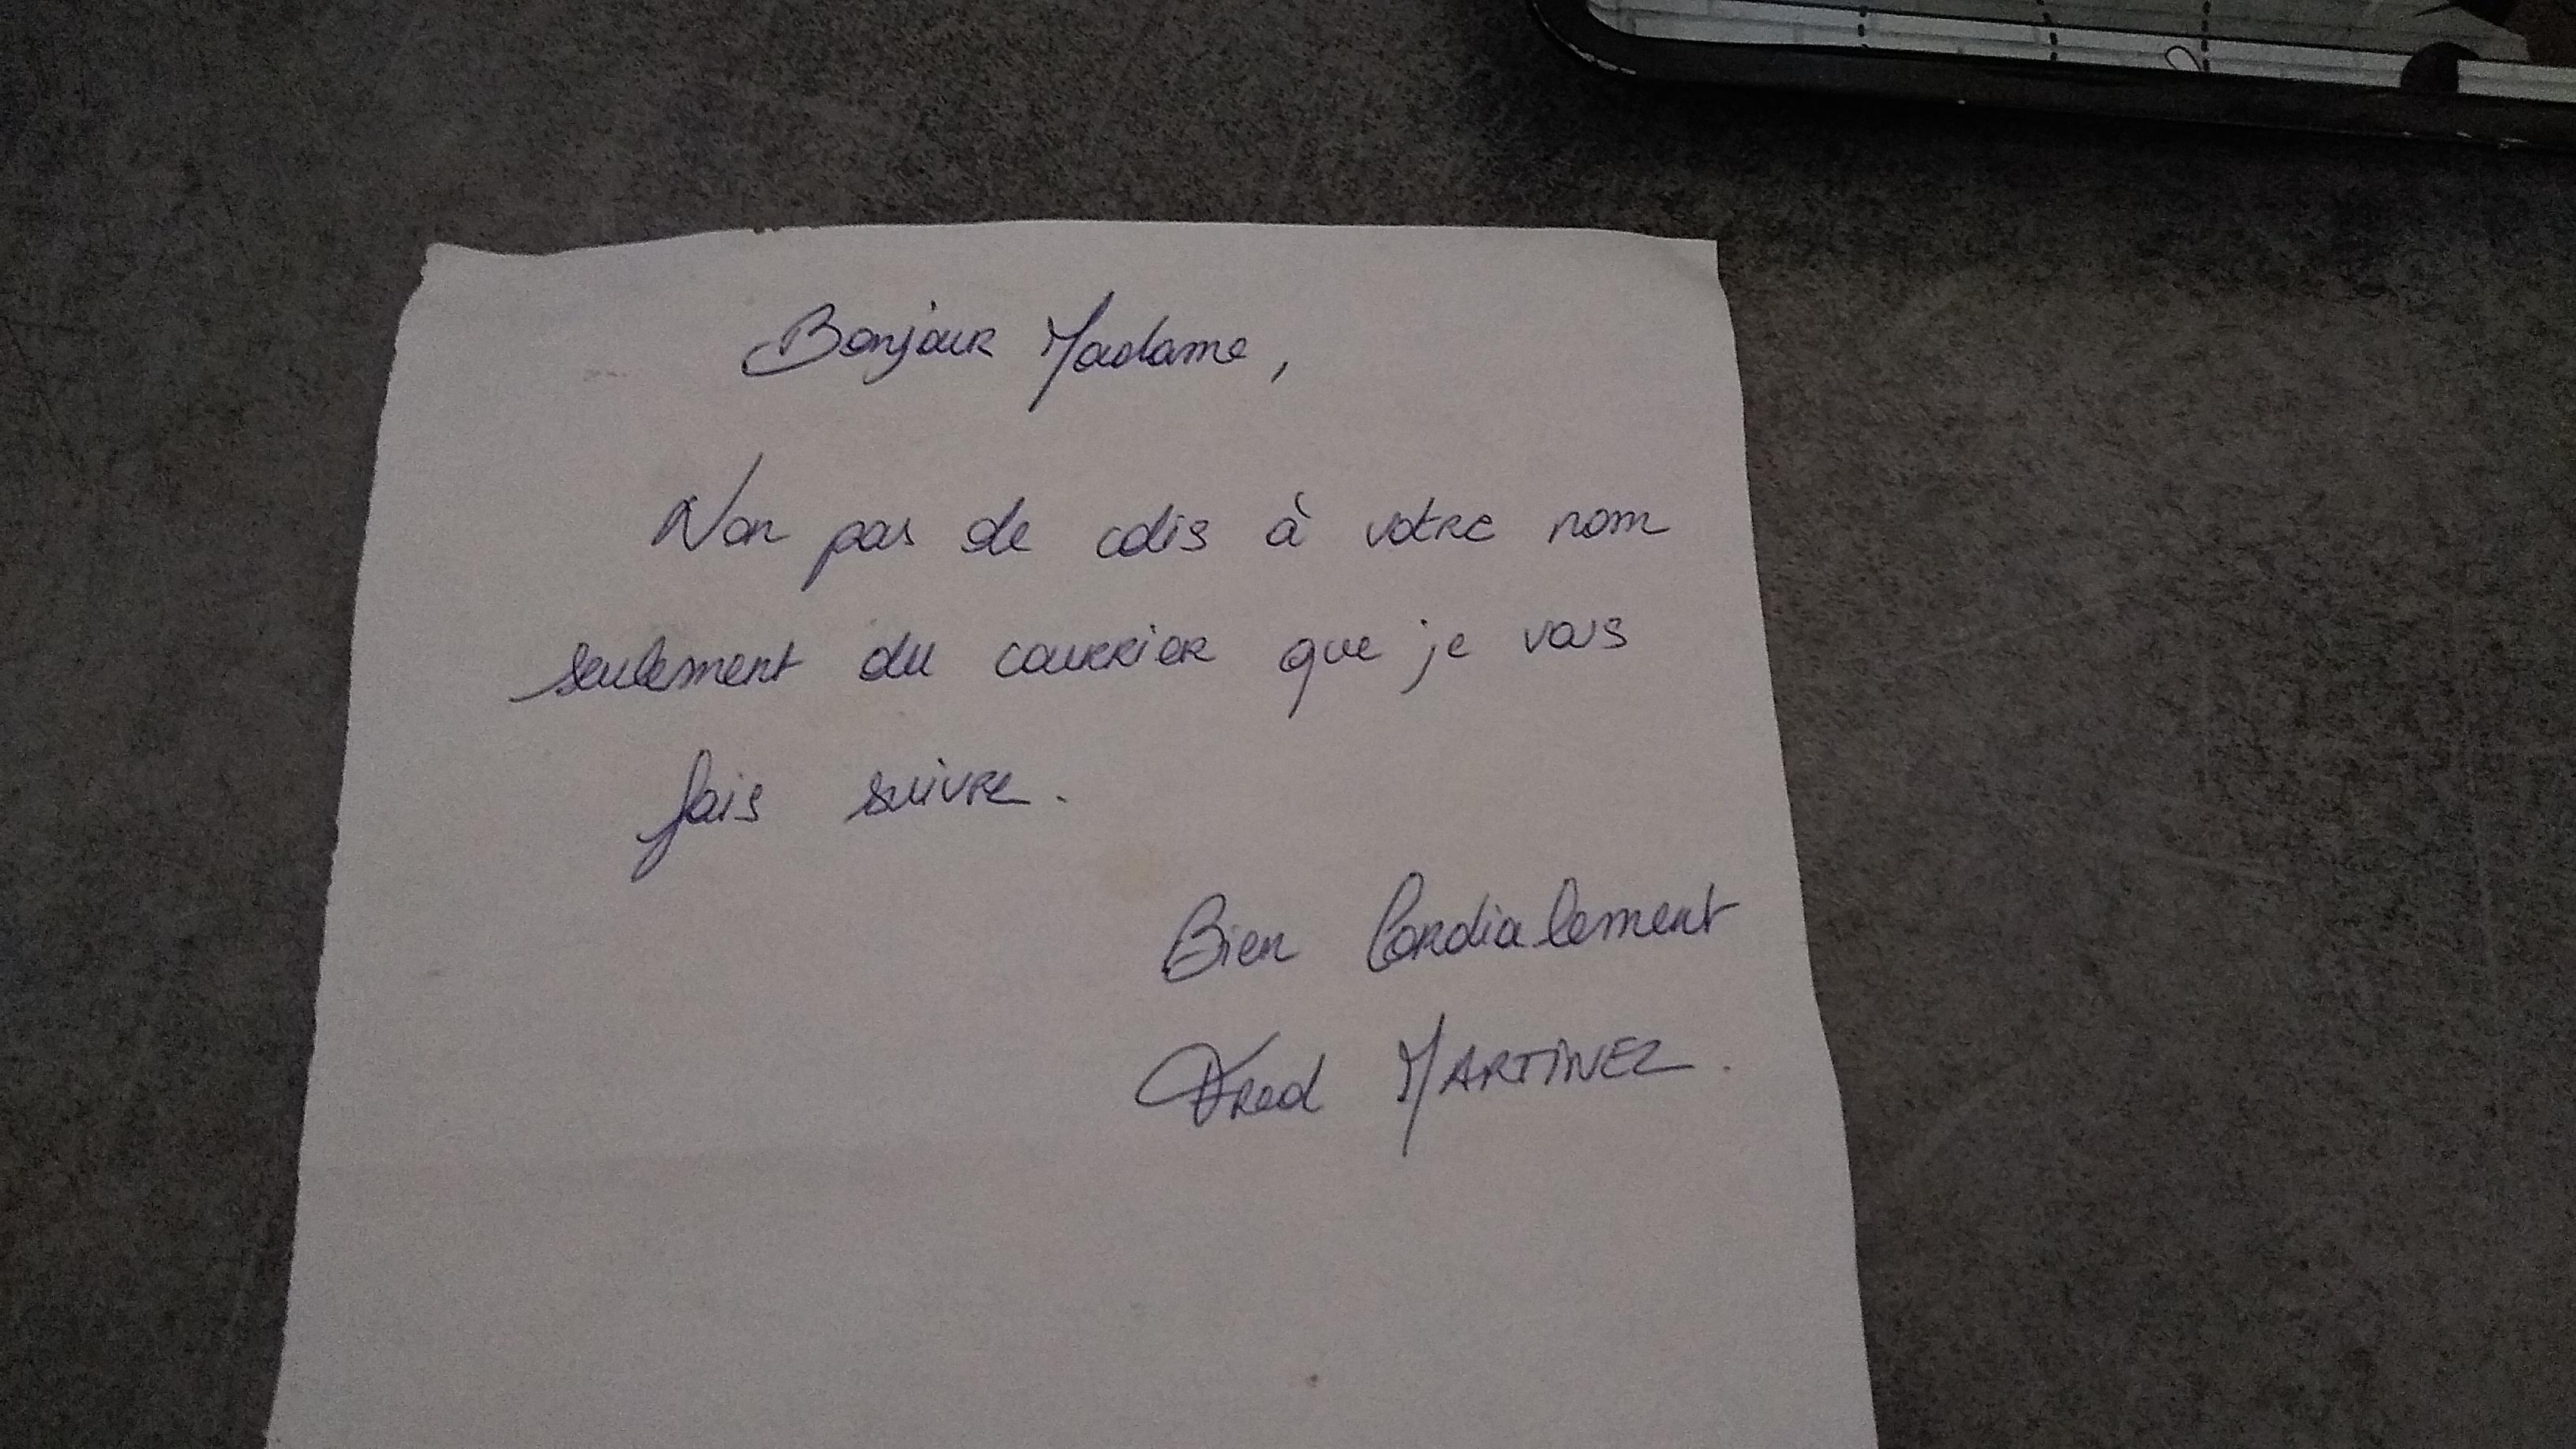 Bonjour Madame,
Non pas de colis à votre nom
seulement du courrier que je vous
fais suivre.
Bien Cordialement
Fred MARTINEZ.